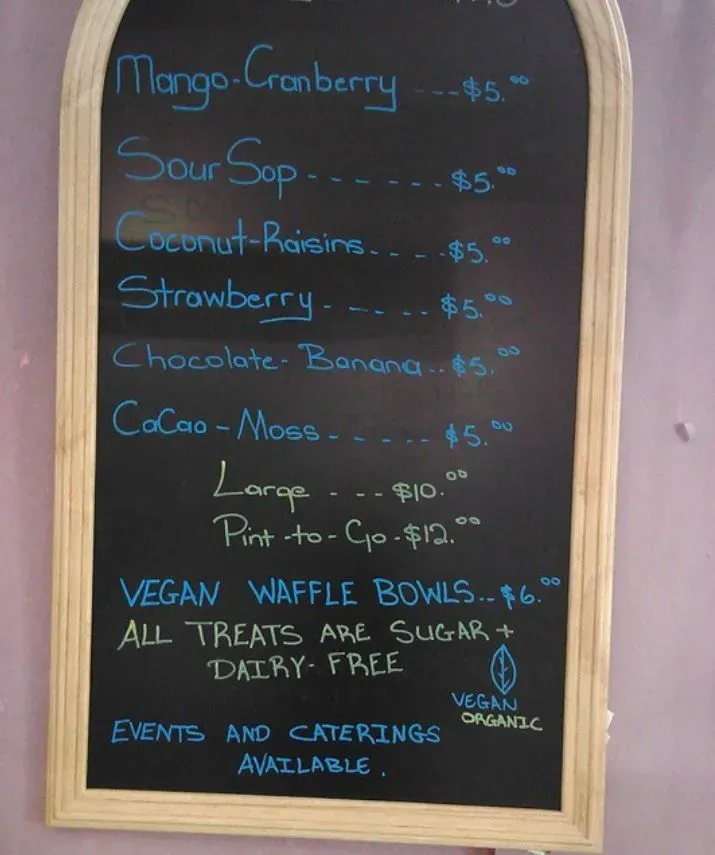 Mango-Cranberry ---$5.00
Sour Sop -------$5.00
Coconut-Raisins.---$5.00
Strawberry------$5.00
Chocolate-Banana..$5.00
CaCao-Moss------$5.00
Large ---$10.00
Pint-to-Go-$12.00
VEGAN WAFFLE BOWLS..$6.00
ALL TREATS ARE SUGAR +
DAIRY-FREE
VEGAN
ORGANIC
EVENTS AND CATERINGS
AVAILABLE.